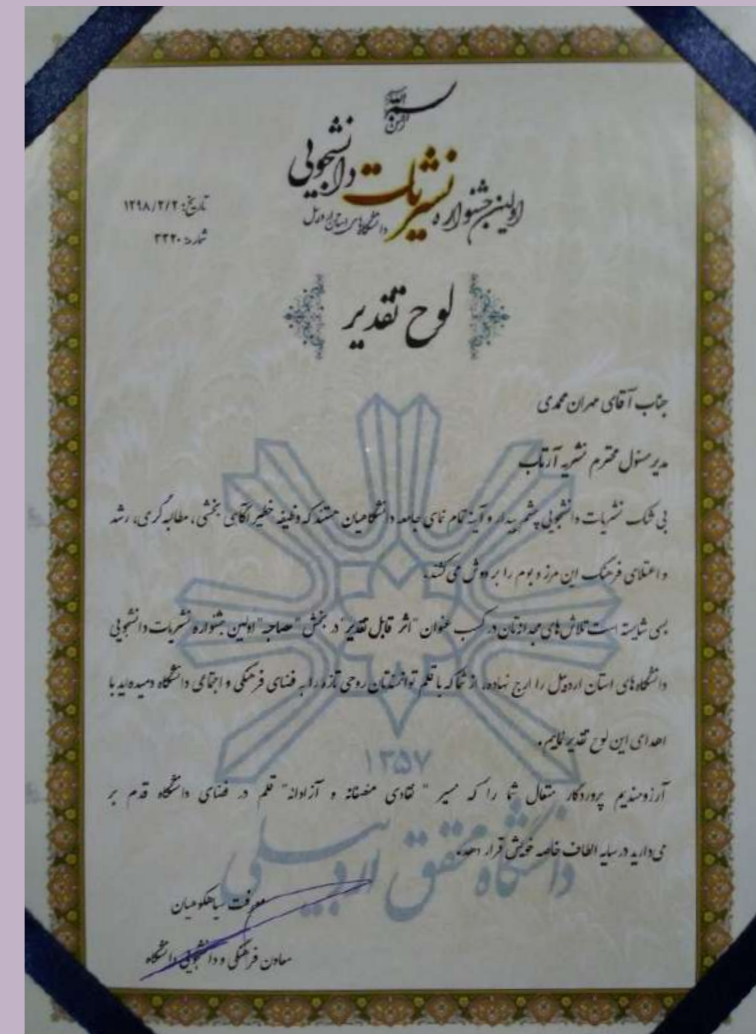 بسم الله الرحمن الرحیم
اولین جشنواره نشریات دانشجویی
دانشگاه‌های استان اردبیل
تاریخ: ۱۳۹۸/۲/۲
شماره: ۳۳۲۰
لوح تقدیر
جناب آقای مهران محمدی
مدیر مسئول محترم نشریه آرتاب
بی شک نشریات دانشجویی چشم بیدار و آینه تمام نمای جامعه دانشگاهیان هستند که وظیفه خطیر آگاهی بخشی، مطالبه گری، رشد
و اعتلای فرهنگ این مرز و بوم را بر دوش می کشند.
بسی شایسته است تلاش های مجدانه‌تان در کسب عنوان "اثر قابل تقدیر" در بخش "مصاحبه" اولین جشنواره نشریات دانشجویی
دانشگاه‌های استان اردبیل را ارج نهاده، از شما که با قلم توانمندتان روحی تازه را به فضای فرهنگی و اجتماعی دانشگاه دمیده‌اید با
اهدای این لوح تقدیر نماییم.
آرزومندیم پروردگار متعال شما را که مسیر "نقادی منصفانه و آزادانه" قلم در فضای دانشگاه قدم بر
می‌دارید در سایه الطاف خاصه خویش قرار دهد.
۱۳۵۷
دانشگاه محقق اردبیلی
معرفت سیاهکوهیان
معاون فرهنگی و دانشجویی دانشگاه